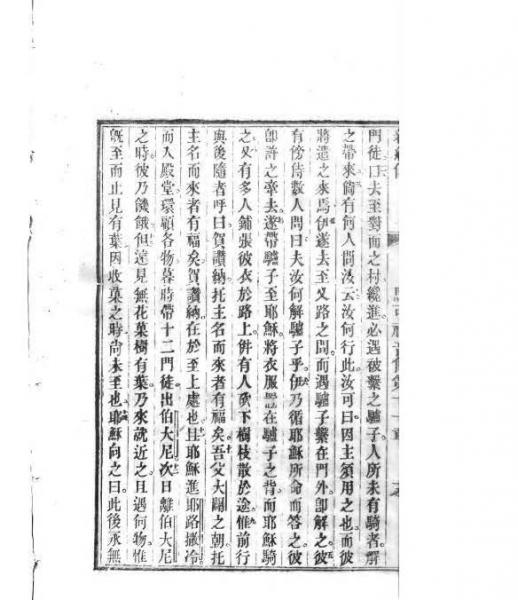 門徒曰夫至對面之村纔進必遇彼繫之驢子人所未有騎者解
之帶來倘有何人問汝云汝何行此汝可曰因主須用之也而彼
將遣之來焉伊遂去至叉路之間而遇驢子繫在門外卽解之彼
有傍侍數人問曰夫汝何解驢子乎伊乃循耶穌所命而答之彼
卽許之牽去遂帶驢子至耶穌將衣服置在驢子之背而耶穌騎
之又有多人鋪張彼衣於路上倂有人砍下樹枝散於途惟前行
與後隨者呼曰賀讚納托主名而來者有福矣吾父大闢之朝托
主名而來者有福矣賀讚納在於至上處也且耶穌進耶路撒冷
而入殿堂環顧各物暮時帶十二門徒出伯大尼次日離伯大尼
之時彼乃饑餓但遠見無花菓樹有葉乃來就近之且遇何物惟
旣至而止見有葉因收菓之時尚未至也耶穌向之曰此後永無